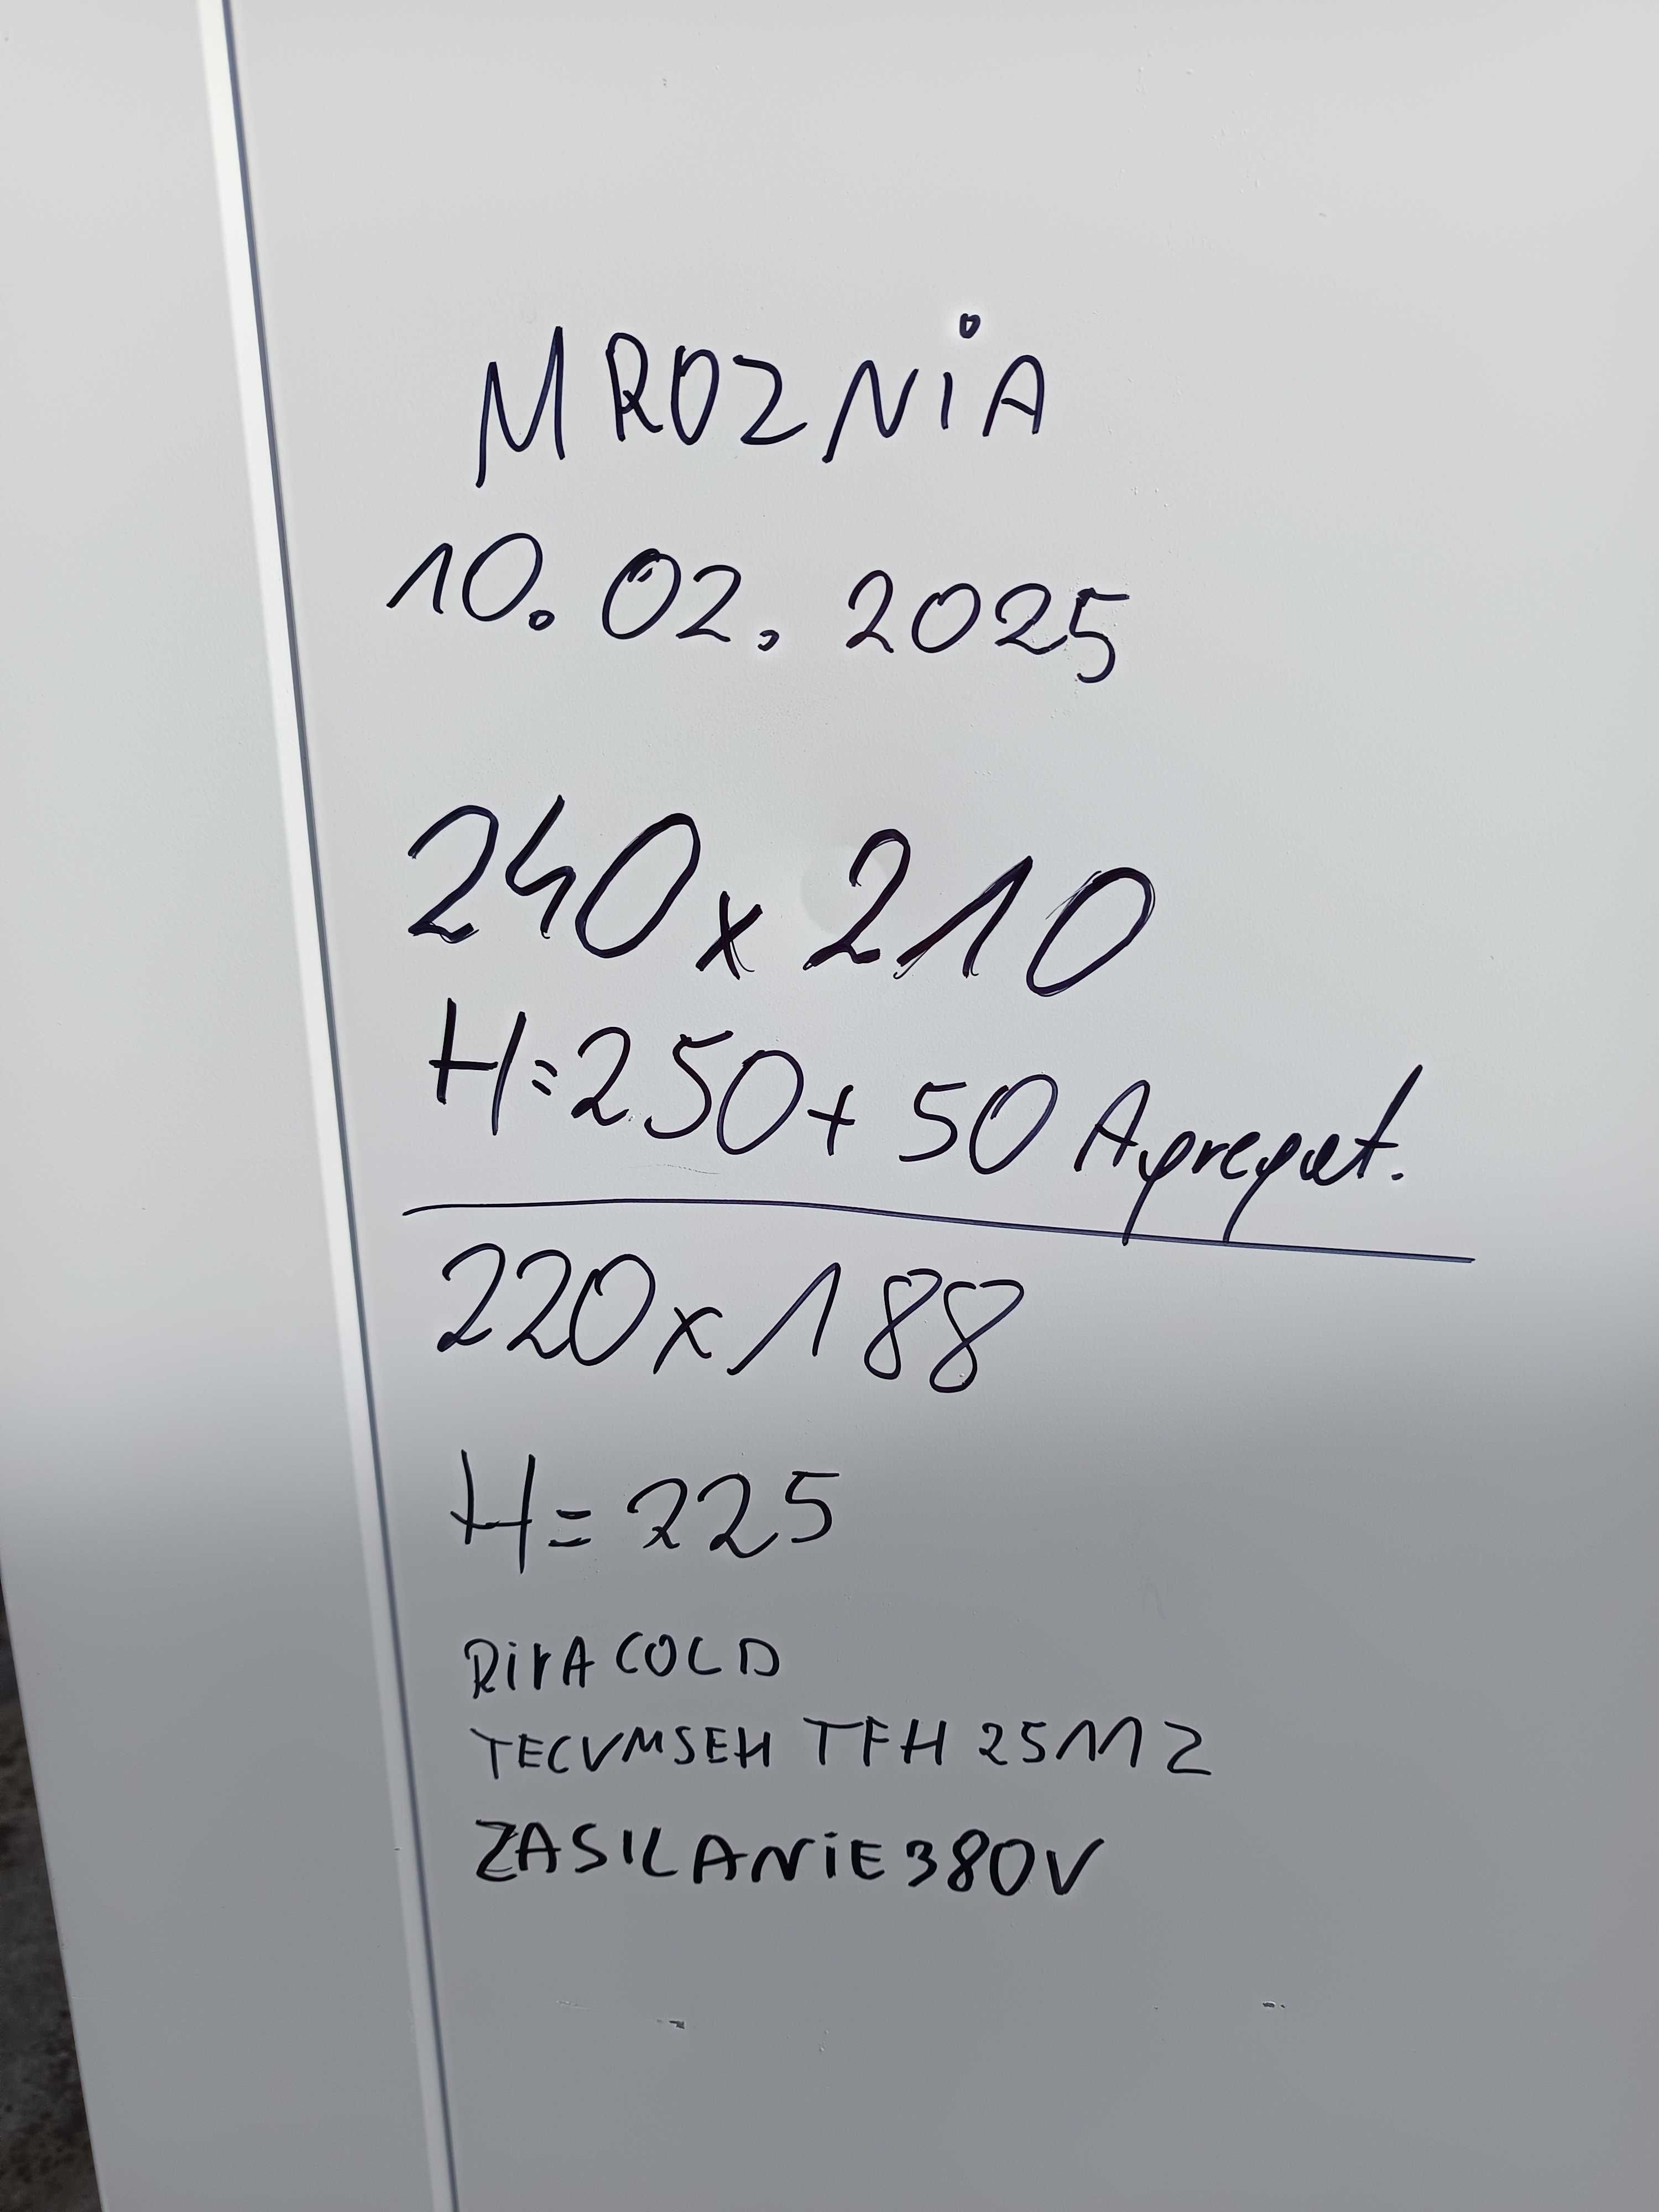 MROZNiA
10. 02. 2025
240 x 210
H=250 + 50 Agregat.
220 x 188
H = 225
RiVA COLD
TECUMSEH TFH 25MZ
ZASILANiE 380V